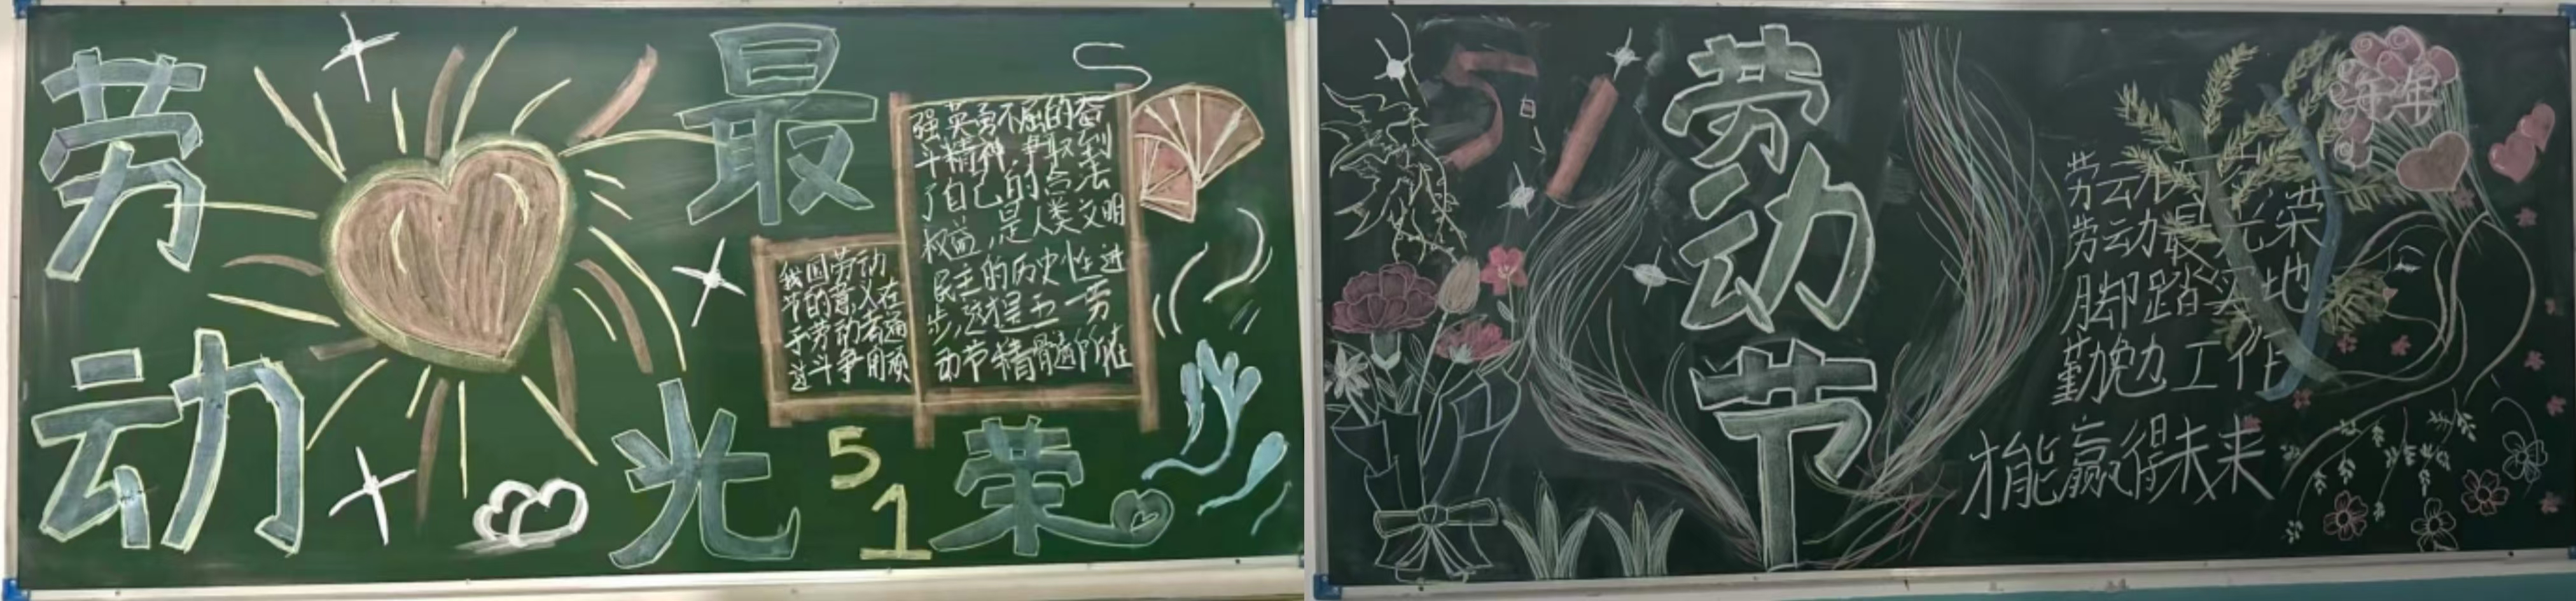 劳动最光荣
我国劳动
节的意义在
于劳动者通
过斗争用顽
强英勇不屈的奋
斗精神,争取到
了自己的合法
权益,是人类文明
民主的历史性进
步,这才是五一劳
动节精髓所在
51
51
劳动节
劳动最光荣
脚踏实地
勤勉工作
才能赢得未来